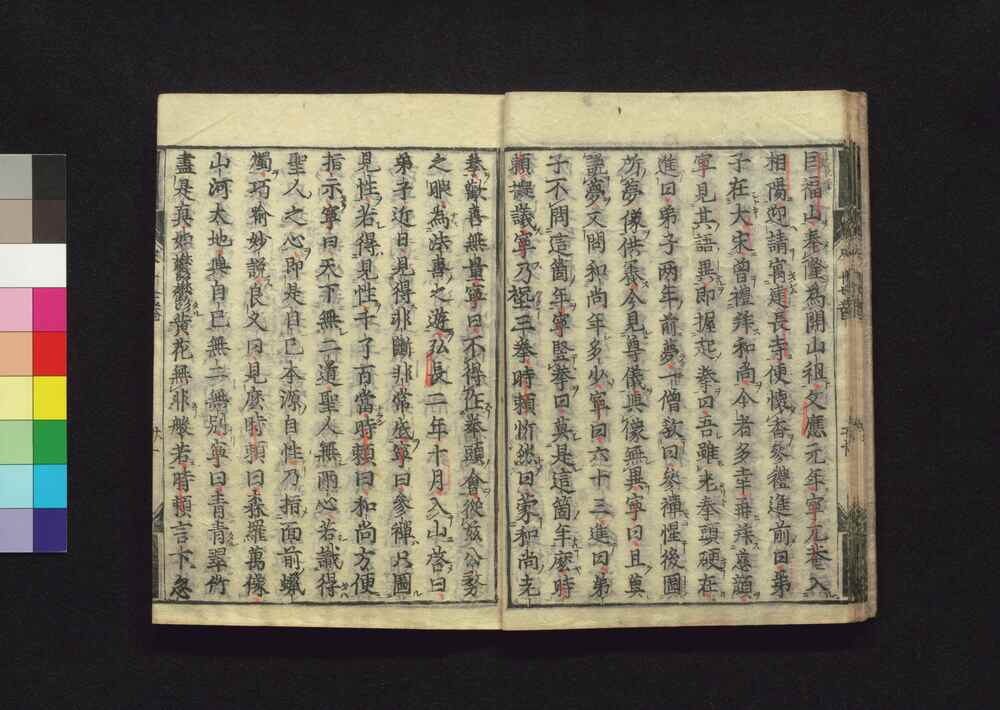 巨福山奉隆為開山祖文應元年寧兀菴入
相陽迎請寓建長寺便懷香參禮進前曰弟
子在大宋曾禮拜和尚今者多幸再拜慈顏
寧見其語異即握起拳曰吾雖老拳頭硬在
進曰弟子兩年前夢一僧教曰參禪惺後圖
所夢像供養今見尊儀與像無異寧曰且莫
說夢又問和尚年多少寧曰六十三進曰弟
子不問這箇年寧竪拳曰莫是這箇年麼時
頼擬議寧乃打三拳時頼忻然曰蒙和尚老
拳歡喜無量寧曰不得在拳頭會從茲公務
之暇為法喜之遊弘長二年十月入山啓曰
弟子近日見得非斷非常底寧曰參禪只圖
見性若得見性千了百當時頼曰和尚方便
指示寧曰天下無二道聖人無兩心若識得
聖人之心即是自己本源自性乃指面前蠟
燭巧喻妙說良久曰見麼時頼曰森羅萬像
山河大地與自己無二無別寧曰青青翠竹
盡是真如鬱鬱黄花無非般若時頼言下忽